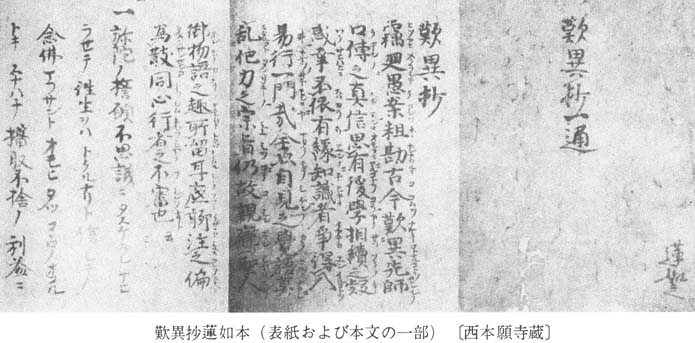 歎異抄一通
蓮如之
歎異抄
竊廻愚案粗勘古今歎異先師
口傳之真信思有後學相續之疑
惑幸不依有縁知識者爭得入
易行一門哉全以自見之覺語莫
乱他力之宗旨仍故親鸞聖人
御物語之趣所留耳底聊注之偏
為散同心行者之不審也 云云
一 弥陀ノ誓願不思議ニタスケラレマヒ
ラセテ往生ヲハトクルナリト信シテ
念佛マウサントオモヒタツコヽロノオコル
トキスナハチ攝取不捨ノ利益ニ
歎異抄蓮如本（表紙および本文の一部）〔西本願寺蔵〕